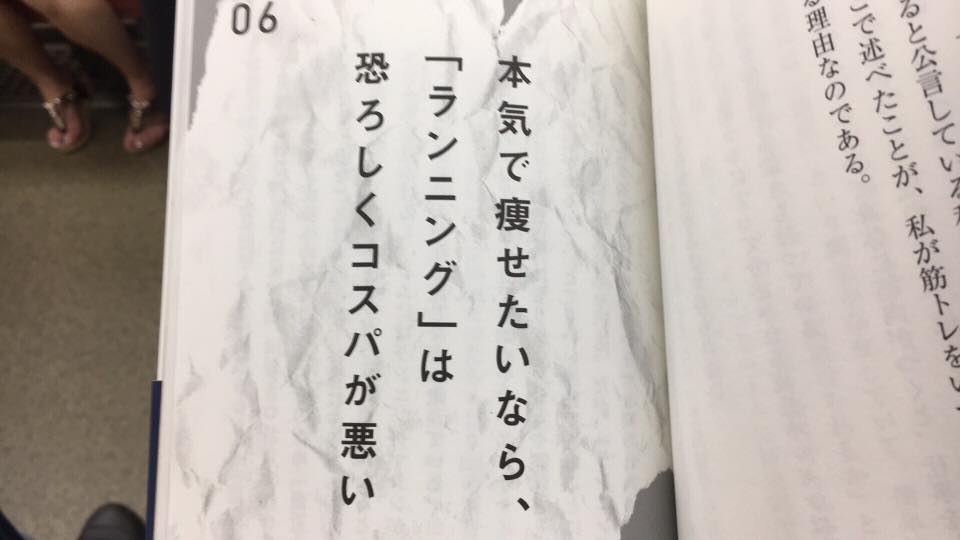 06
本気で痩せたいなら、
「ランニング」は
恐ろしくコスパが悪い
ると公言している
こで述べたことが、私が筋トレを
る理由なのである。